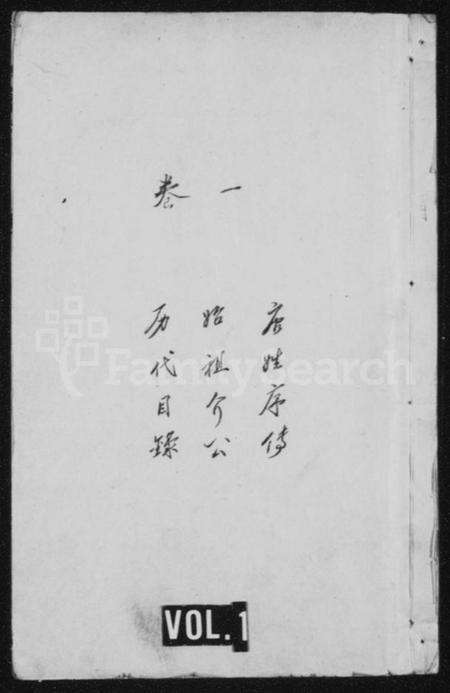 卷一
唐姓序传
始祖介公
历代目录
VOL.1
FamilySearch